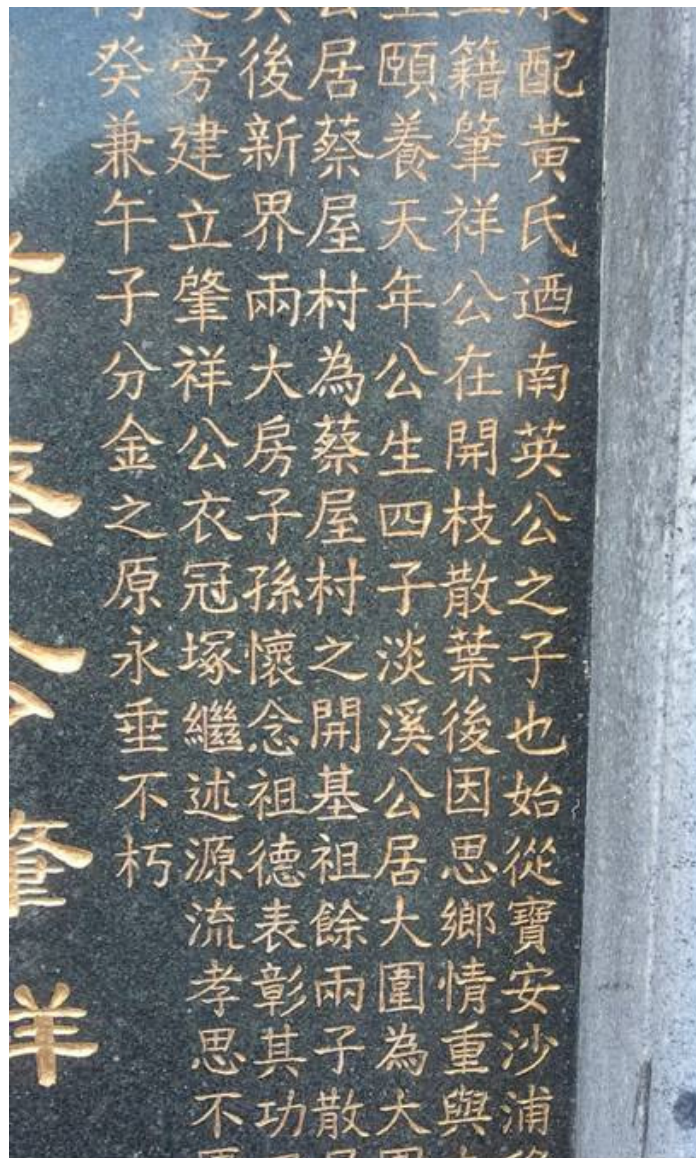 配黃氏迺南英公之子也始從寶安沙浦
籍肇祥公在開枝散葉後因思鄉情重與
頤養天年公生四子淡溪公居大圍為大圍
居蔡屋村為蔡屋村之開基祖餘兩子散居
後新界兩大房子孫懷念祖德表彰其功
旁建立肇祥公衣冠塚繼述源流孝思不匱
癸兼午子分金之原永垂不朽
蔡公肇祥